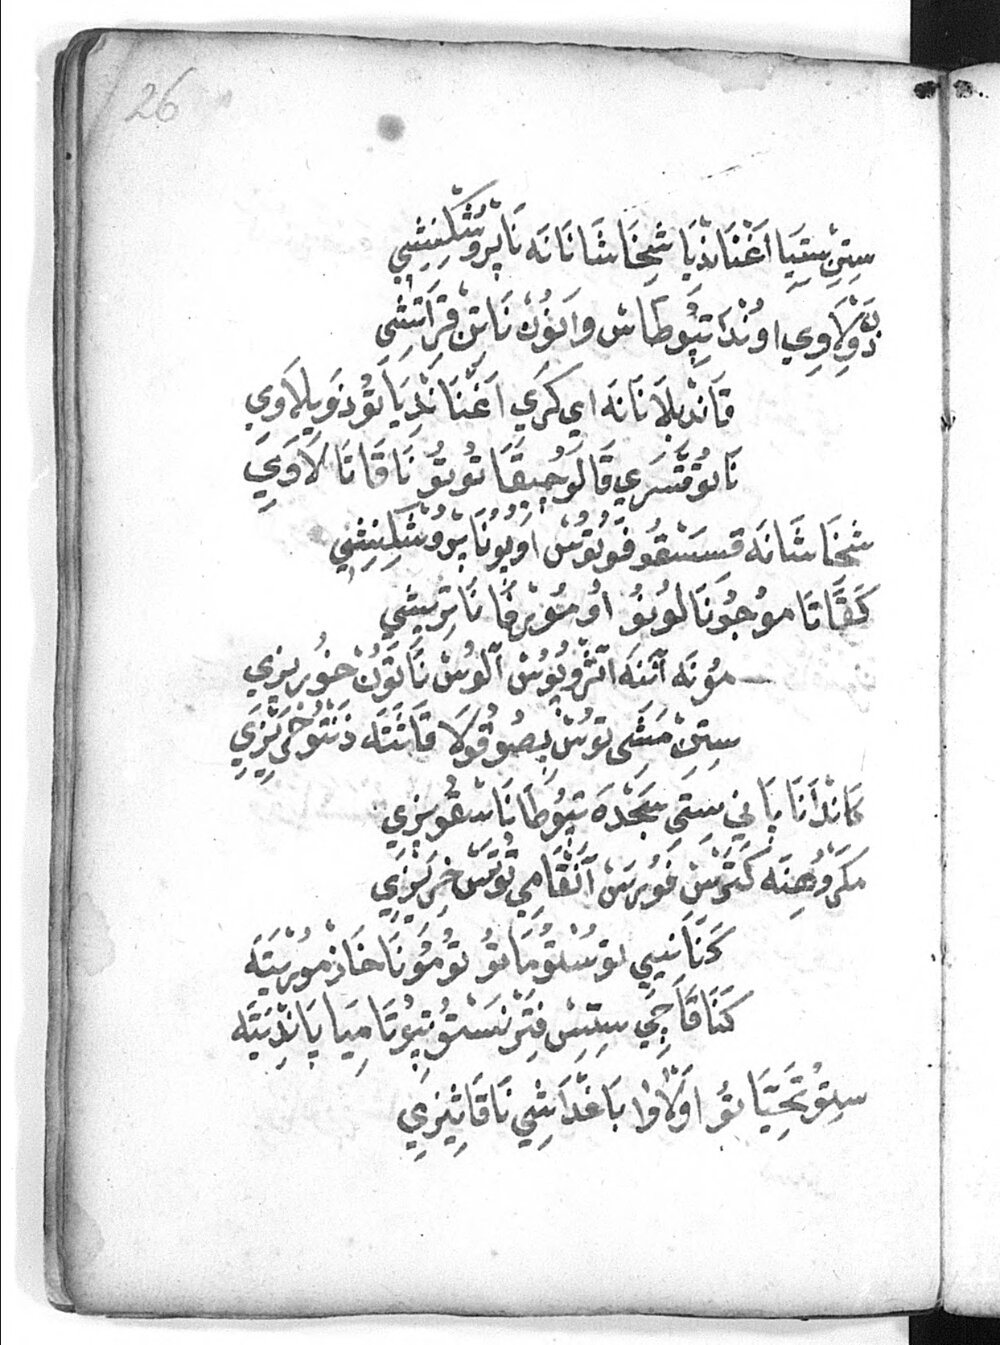 26
سِتِنْ سِتِيَا اَغْنَانْدْيَا شِخَاشَا نَا نَه نَاپْرُوشْكِنِيشِي
دُولَاوِي اوُنْدَا تِپُوطَاسْ وَابُونْ نَاتِنْ قِرَاتِشِي
قَانْدِبلَا نَا نَه اي كَرَي اَغْنَانْدِيَا تُو ذَوِيلَاوِي
نَا تُو قْسَرِي قَالَوُجِيقَا تُوتُو نَا قَاتَا لَاوَيِ
شِخَاشَا نَه قسَسْقُو فَوبُوتُسْ اوُيُونَا پْرُوشْكِنِيشِي
كَقَاتَا مُوجُونَا لُوبُو اوُ مُوبْرِفَا نَا تِرْبِيشِي
مُونَه آتنَه آتْرُوپُوسْ آلوُسْ نَا تُونْ خُوْرِيزِي
سِتِنْ مَشَى تُوسْ پِصُوقُولَا قَاثَتَه ذَنْتُوخَى يْزِي
كَانْدَانَا پَا نِي سِتِى سَجْدَه تِپُوطَا نَا سْغُوِيزِي
مَكَرُوهِنَه كَتْرَسْ فَوُرسْ آنْقَامِي تُوتَسْ خِرَيْزِي
كَنَانِسِي تُوسُنْتُومَاتُو تُومُونَا خَازْمُورْيَتَه
كَنَاقَاجِي سِتِسْ فِتْرِنَسْتُو تِپُوتَامِيَا پَانْذِيَتَه
سِتُو تَخِتْيَا تُو اوَلَاوَا بَاغْدَاشِي نَا قَاثِيزِي